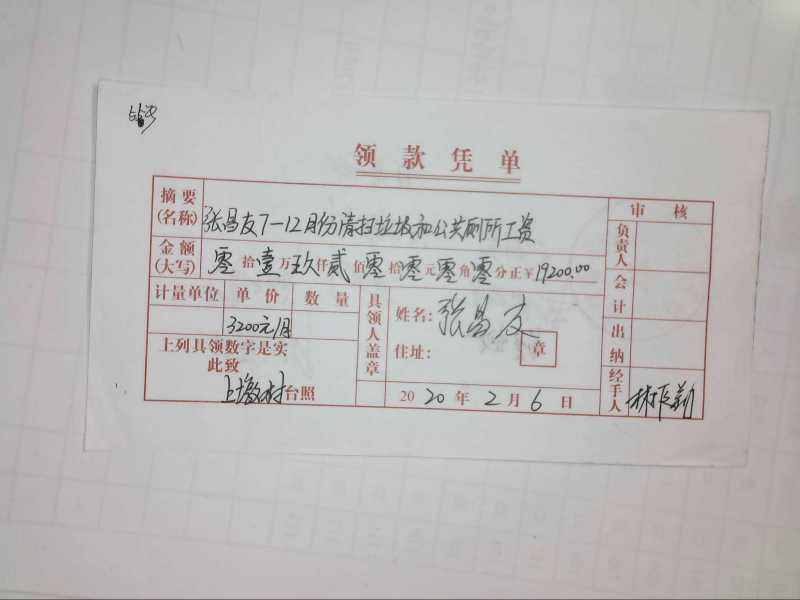 领款凭单
摘要(名称) 张昌友7-12月份清扫垃圾和公共厕所工资
审核
金额(大写) 零拾壹万玖仟贰佰零拾零元零角零分正￥19200.00
负责人
计量单位 单价 数量
3200元/月
会计
具领人盖章
姓名：张昌友
住址：
章
出纳
上列具领数字是实
此致
上墩村台照
2020年2月6日
经手人